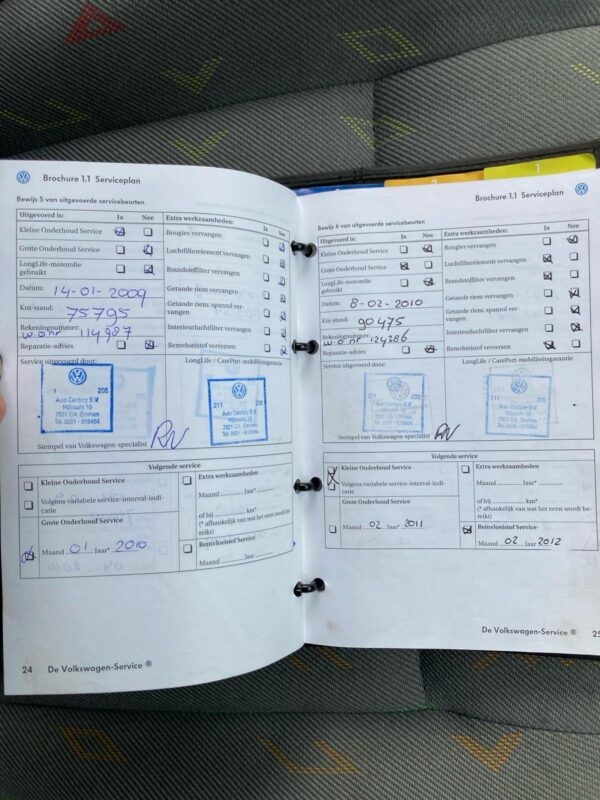 Brochure 1.1 Serviceplan
Bewijs 5 van uitgevoerde servicebeurten
Uitgevoerd is: Ja Nee
Kleine Onderhoud Service
Grote Onderhoud Service
LongLife-motorolie
gebruikt
Datum: 14-01-2009
Km-stand: 75795
Rekeningnummer:
w.o nr 114987
Reparatie-advies
Extra werkzaamheden: Ja Nee
Bougies vervangen
Luchtfilterelement vervangen
Brandstoffilter vervangen
Getande riem vervangen
Getande riem: spanrol ver-
vangen
Interieurluchtfilter vervangen
Remvloeistof verversen
Service uitgevoerd door:
LongLife / CarePort-mobiliteitsgarantie
Auto Century B.V.
Nijbracht 10
7821 CA Emmen
Tel. 0591 - 616464
211 206
Auto Century B.V.
Nijbracht 10
7821 CA Emmen
Tel. 0591 - 616464
Stempel van Volkswagen-specialist RN
Volgende service
Kleine Onderhoud Service
Volgens variabele service-interval-indi-
catie
Grote Onderhoud Service
Maand 01 Jaar* 2010
Extra werkzaamheden
Maand Jaar*
of bij km*
(* afhankelijk van wat het eerst wordt be-
reikt)
Remvloeistof Service
Maand Jaar
24 De Volkswagen-Service ®
Brochure 1.1 Serviceplan
Bewijs 6 van uitgevoerde servicebeurten
Uitgevoerd is: Ja Nee
Kleine Onderhoud Service
Grote Onderhoud Service
LongLife-motorolie
gebruikt
Datum: 8-02-2010
Km-stand: 90475
Rekeningnummer:
w.o nr 124386
Reparatie-advies
Extra werkzaamheden: Ja Nee
Bougies vervangen
Luchtfilterelement vervangen
Brandstoffilter vervangen
Getande riem vervangen
Getande riem: spanrol ver-
vangen
Interieurluchtfilter vervangen
Remvloeistof verversen
Service uitgevoerd door:
LongLife / CarePort-mobiliteitsgarantie
Stempel van Volkswagen-specialist RN
Volgende service
Kleine Onderhoud Service
Volgens variabele service-interval-indi-
catie
Grote Onderhoud Service
Maand 02 Jaar* 2011
Extra werkzaamheden
Maand Jaar*
of bij km*
(* afhankelijk van wat het eerst wordt be-
reikt)
Remvloeistof Service
Maand 02 Jaar 2012
De Volkswagen-Service ® 25